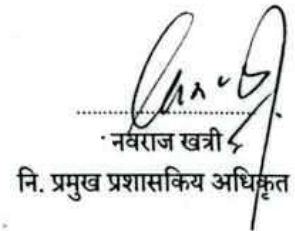 नवराज खत्री
नि. प्रमुख प्रशासकिय अधिकृत